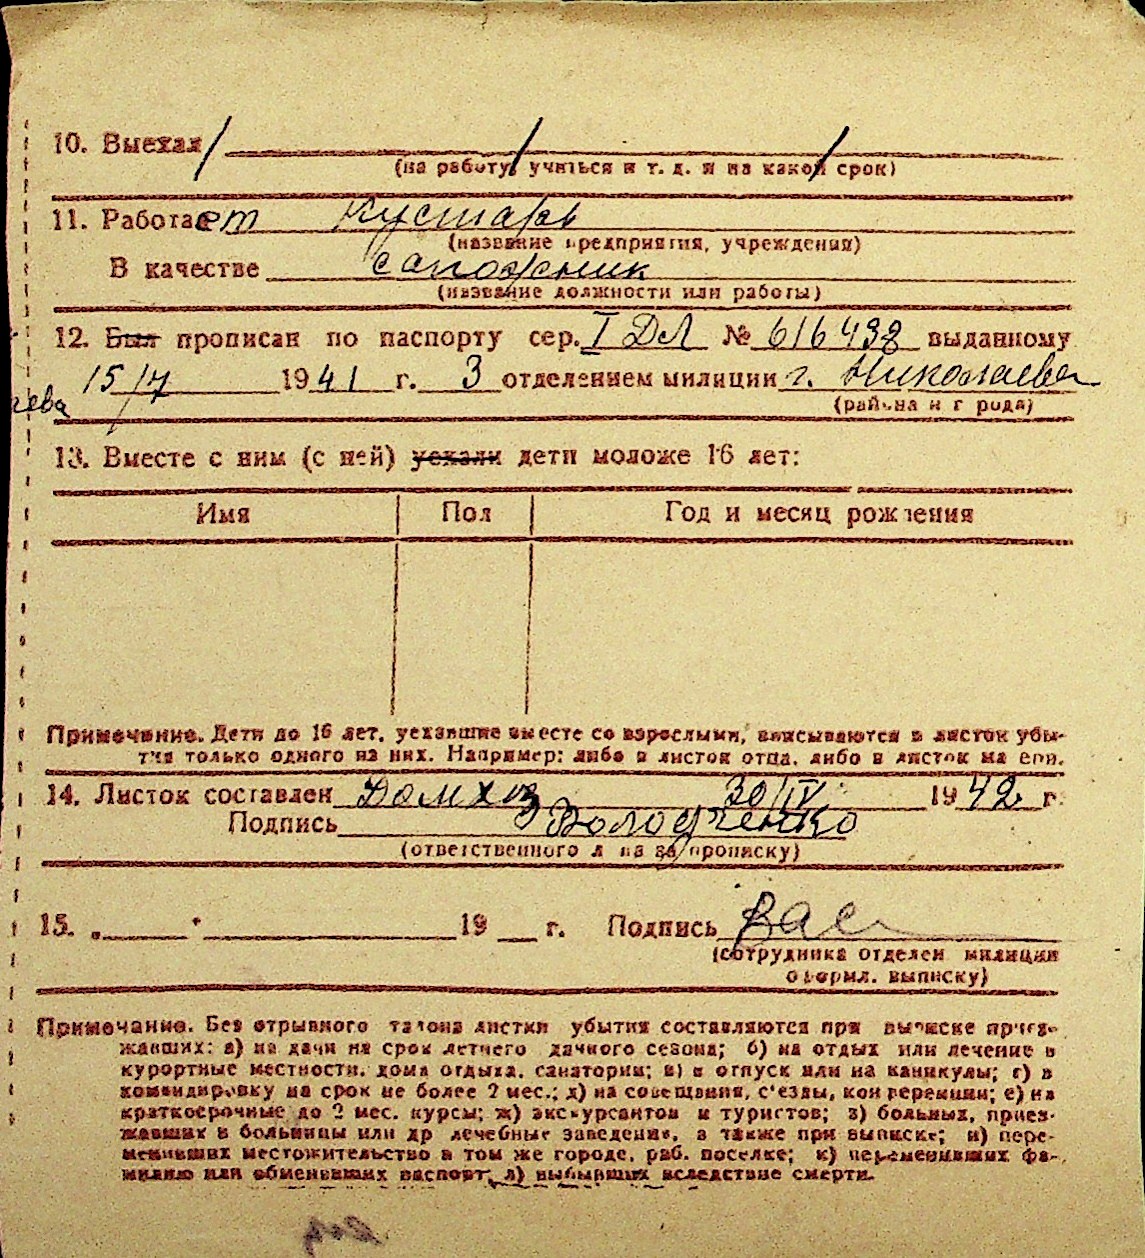 10. Выехал
(на работу, учиться и т. д. и на какой срок)
11. Работает Кустарь
(название предприятия, учреждения)
В качестве сапожник
(название должности или работы)
12. Был прописан по паспорту сер. I ДЛ № 616438 выданному
15/7 1941 г. 3 отделением милиции г. Николаева
(района и города)
13. Вместе с ним (с ней) уехали дети моложе 16 лет:
Имя Пол Год и месяц рождения
Примечание. Дети до 16 лет, уехавшие вместе со взрослыми, вписываются в листок убы-
тия только одного из них. Например: либо в листок отца, либо в листок матери.
14. Листок составлен Домхоз 30/IV 1942 г.
Подпись
(ответственного лица за прописку)
15. „ " 19 г. Подпись
(сотрудника отделен милиции
оформл. выписку)
Примечание. Без отрывного талона листки убытия составляются при выписке приез-
жавших: а) на дачи на срок летнего дачного сезона; б) на отдых или лечение в
курортные местности, дома отдыха, санатории; в) в отпуск или на каникулы; г) в
командировку на срок не более 2 мес.; д) на совещания, с'езды, конференции; е) на
краткосрочные до 2 мес. курсы; ж) экскурсантов и туристов; з) больных, приез-
жавших в больницы или др лечебные заведения, а также при выписке; и) пере-
менивших местожительство в том же городе, раб. поселке; к) переменивших фа-
милию или обменявших паспорт, л) выбывших вследствие смерти.